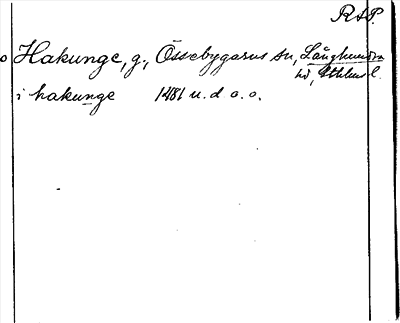 RAP.
Hakunge, g., Össebygarns sn, Långhundra
hd, Sthlms l.
i hakunge 1481 u.d o.o.